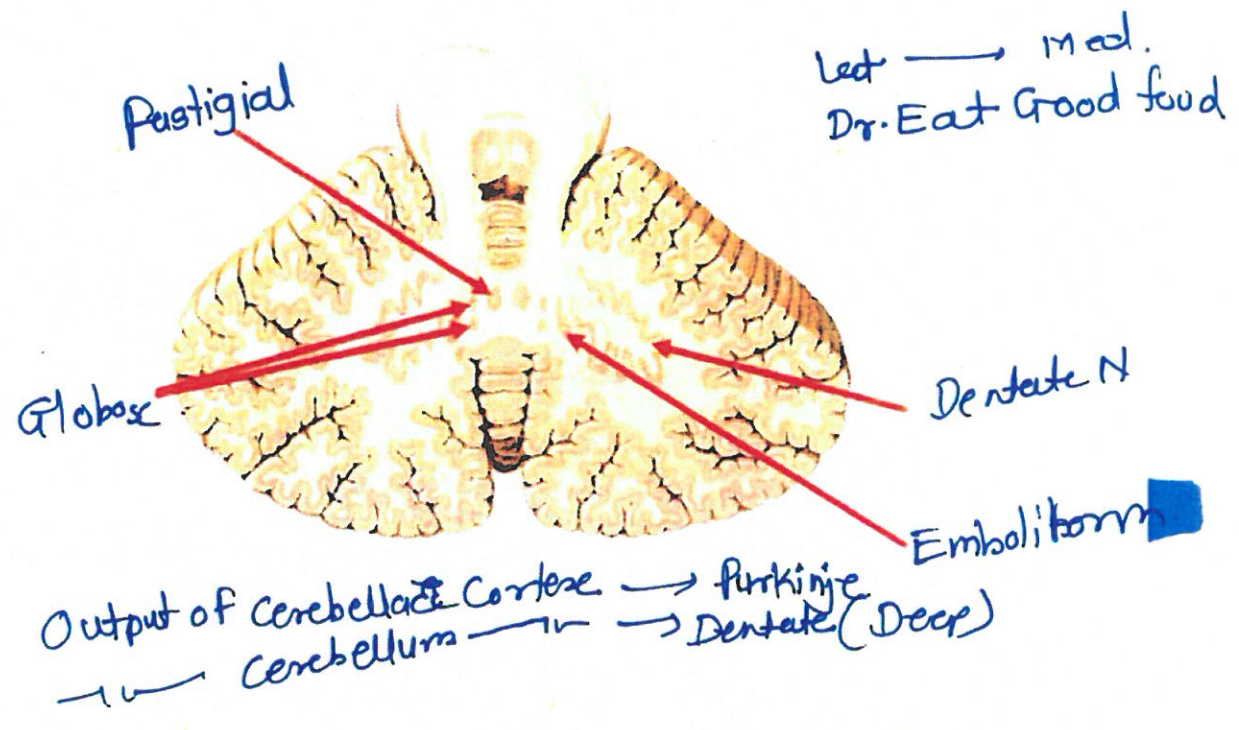 Lat → Med.
Dr. Eat Good food
Fastigial
Globose
Dentate N
Emboliform
Output of Cerebellar Cortex → Purkinje
—〃— Cerebellum —〃— → Dentate (Deep)